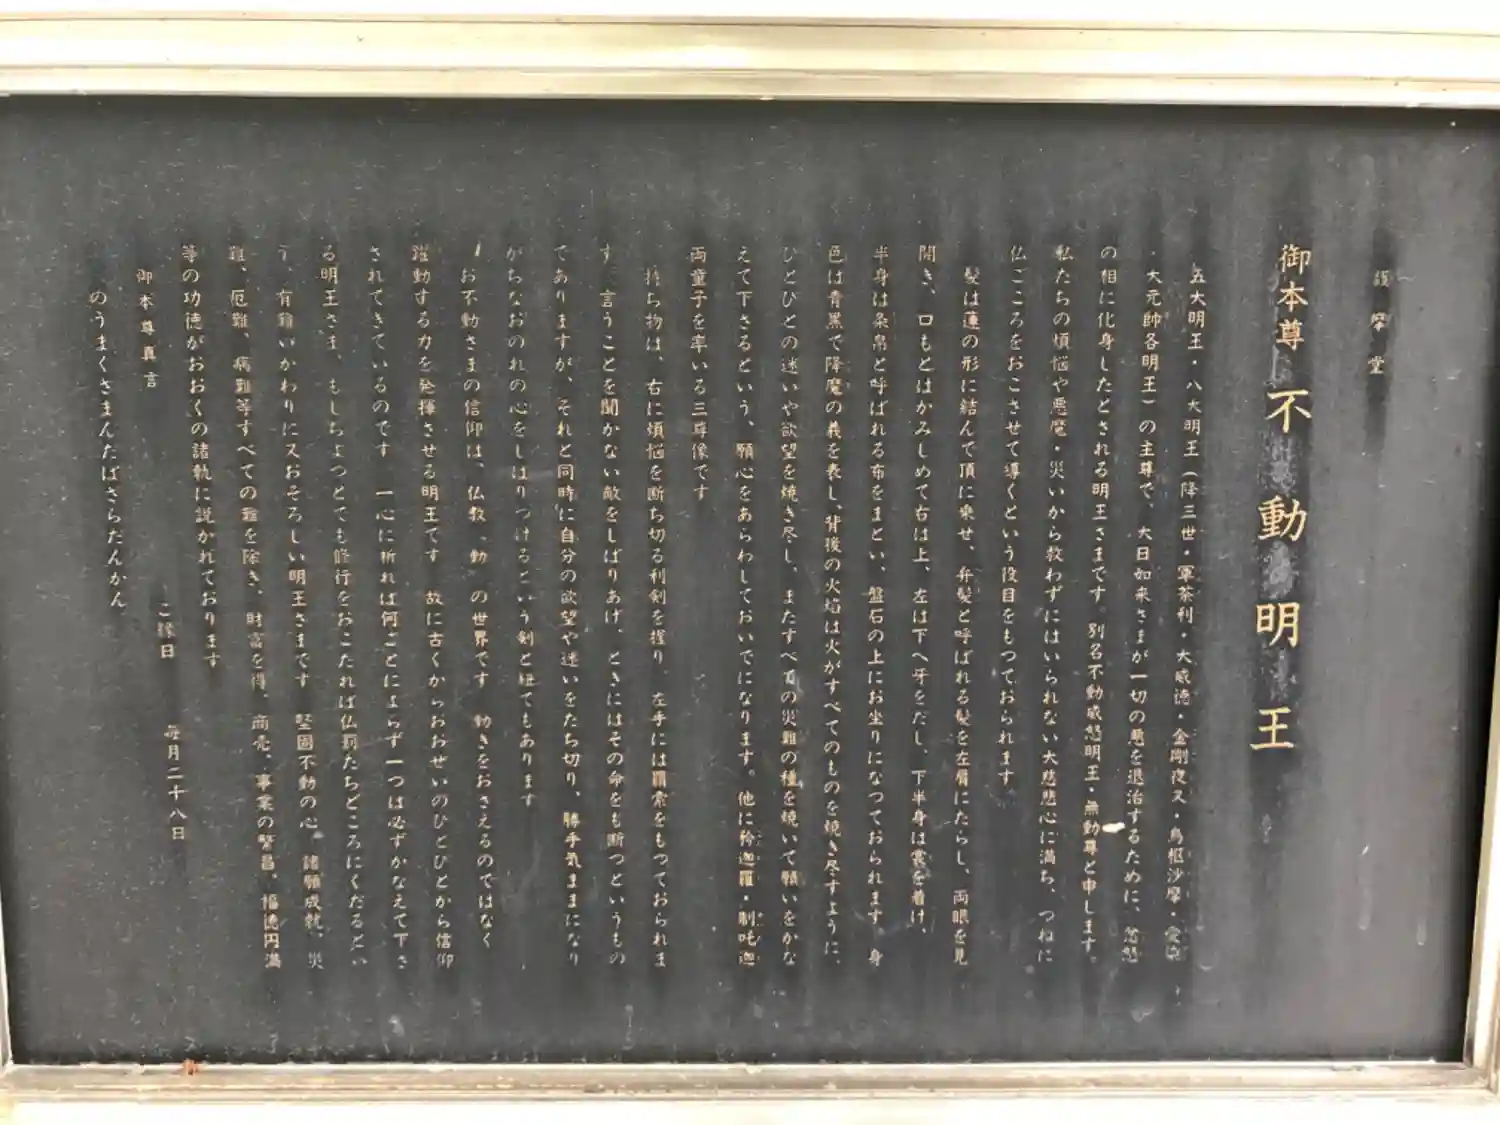 護摩堂
御本尊 不動明王
五大明王・八大明王(降三世・軍荼利・大威徳・金剛夜叉・烏枢沙摩・愛染・
大元帥各明王)の主尊で、大日如来さまが一切の悪を退治するために、忿怒
の相に化身したとされる明王さまです。別名不動威怒明王・無動尊と申します。
私たちの煩悩や悪魔・災いから救わずにはいられない大慈悲心に満ち、つねに
仏ごころをおこさせて導くという役目をもつておられます。
髪は蓮の形に結んで頂に乗せ、弁髪と呼ばれる髪を左肩にたらし、両眼を見
開き、口もとはかみしめて右は上、左は下へ牙をだし、下半身は裳を着け、
半身は条帛と呼ばれる布をまとい、盤石の上にお坐りになつておられます 身
色は青黒で降魔の義を表し、背後の火焰は火がすべてのものを焼き尽すように、
ひとびとの迷いや欲望を焼き尽し、またすべての災難の種を焼いて願いをかな
えて下さるという、願心をあらわしておいでになります。他に矜迦羅・制吒迦
両童子を率いる三尊像です
持ち物は、右に煩悩を断ち切る利剣を握り 左手には羂索をもつておられま
す 言うことを聞かない敵をしばりあげ、ときにはその命をも断つというもの
でありますが、それと同時に自分の欲望や迷いをたち切り、勝手気ままになり
がちなおのれの心をしばりつけるという剣と紐でもあります
お不動さまの信仰は、仏教 動 の世界です 動きをおさえるのではなく
躍動する力を発揮させる明王です 故に古くからおおぜいのひとびとから信仰
されてきているのです 一心に祈れば何ごとによらず一つは必ずかなえて下さ
る明王さま、もしちょつとでも修行をおこたれば仏罰たちどころにくだるとい
う、有難いかわりに又おそろしい明王さまです 堅固不動の心 諸願成就、災
難、厄難、病難等すべての難を除き、財富を得、商売、事業の繁昌、福徳円満
等の功徳がおおくの諸軌に説かれております
御本尊真言 ご縁日 毎月二十八日
のうまくさまんたばさらたんかん